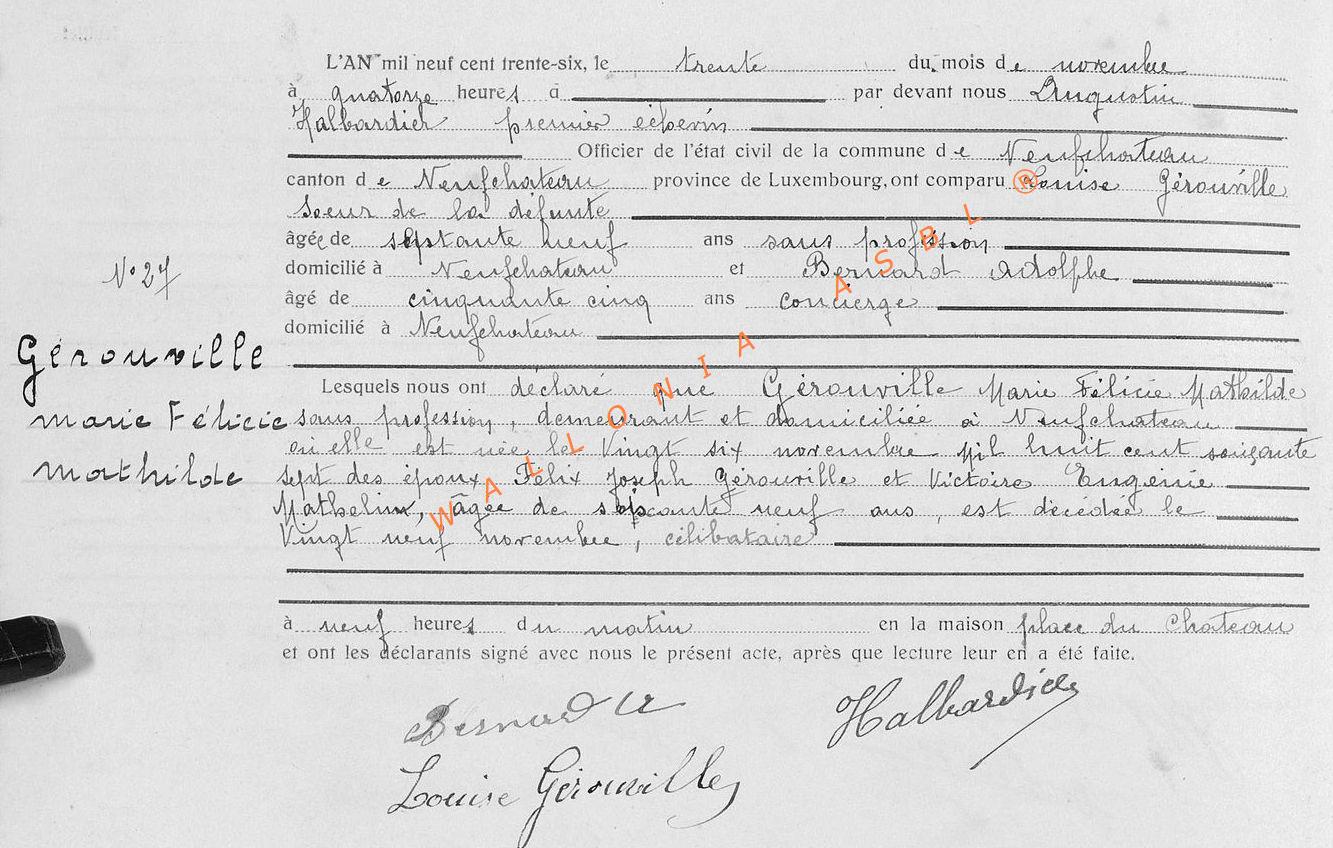 L'AN mil neuf cent trente-six, le trente du mois de novembre
à quatorze heures à par devant nous Augustin
Halbardier premier échevin
Officier de l'état civil de la commune de Neufchateau
canton de Neufchateau province de Luxembourg, ont comparu Louise Gérouville
soeur de la défunte
âgée de septante neuf ans sans profession
domicilié à Neufchateau et Bernard Adolphe
âgé de cinquante cinq ans concierge
domicilié à Neufchateau
N° 27
Gérouville
marie Félicie
mathilde
Lesquels nous ont déclaré que Gérouville Marie Félicie Mathilde
sans profession, demeurant et domiciliée à Neufchateau
où elle est née le Vingt six novembre mil huit cent soixante
sept des époux Félix Joseph Gérouville et Victoire Eugénie
Mathelin, âgée de soixante neuf ans, est décédée le
Vingt neuf novembre, célibataire
à neuf heures du matin en la maison place du Chateau
et ont les déclarants signé avec nous le présent acte, après que lecture leur en a été faite.
Bernard A Halbardier
Louise Gérouville
WALLONIA ASBL ®